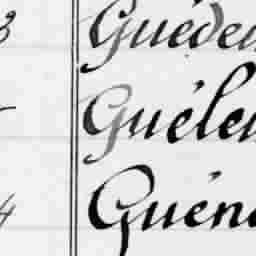 3 Guéde
Guéle
4 Guén